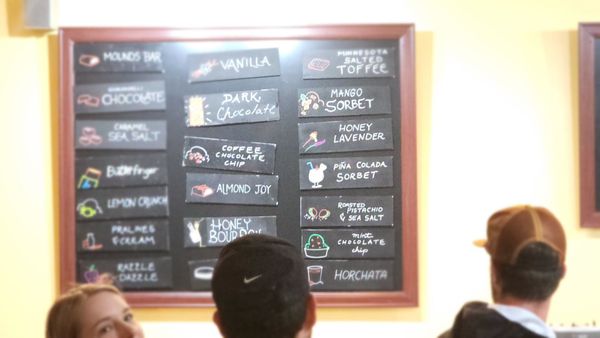 MOUNDS BAR
CHOCOLATE
CARAMEL
SEA SALT
Butterfinger
LEMON CRUNCH
PRALINES
& CREAM
RAZZLE
DAZZLE
VANILLA
DARK
Chocolate
COFFEE
CHOCOLATE
CHIP
ALMOND JOY
HONEY
BOURBON
MINNESOTA
SALTED
TOFFEE
MANGO
SORBET
HONEY
LAVENDER
PIÑA COLADA
SORBET
ROASTED
PISTACHIO
& SEA SALT
mint
CHOCOLATE
chip
HORCHATA